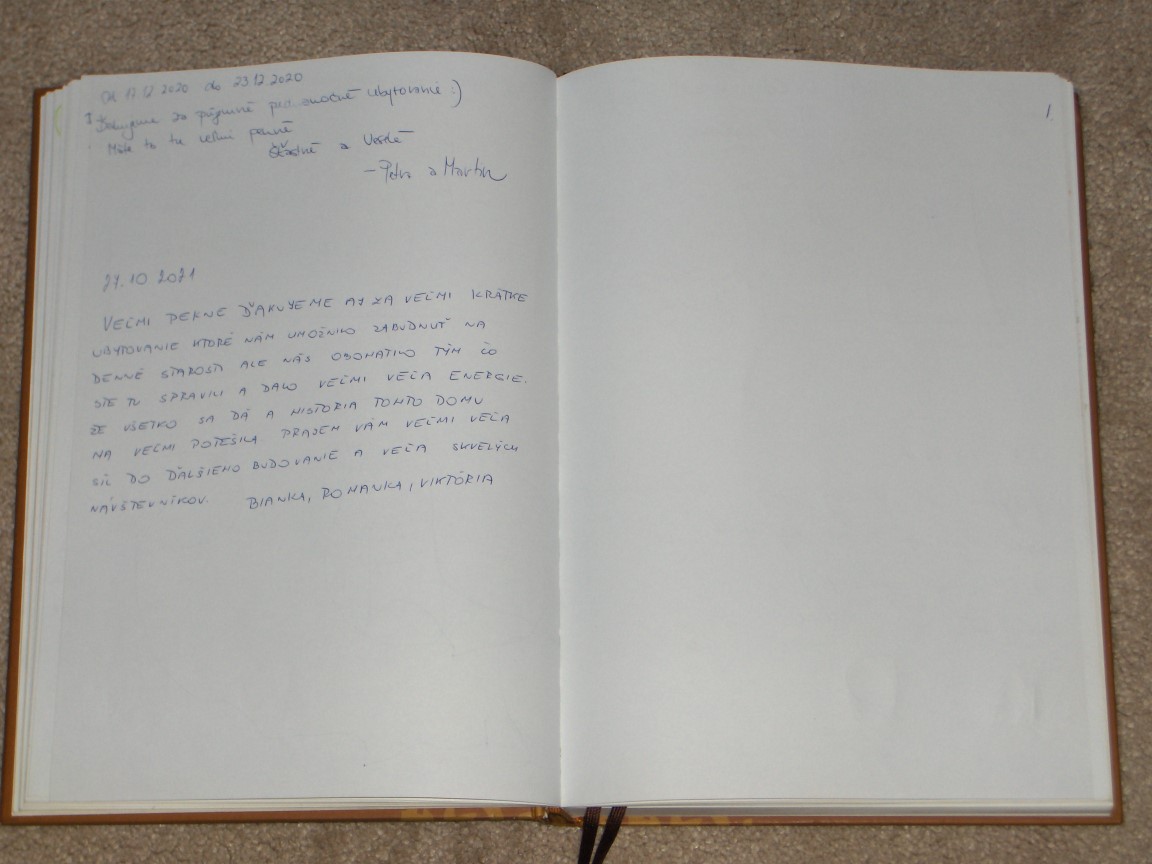 Od 17.12.2020 do 23.12.2020
Ďakujeme za príjemné pred ubytovanie :)
Máte to tu veľmi pekné
Šťastné a Veselé
- Petra a Martin
1
27.10 2021
VEĽMI PEKNE ĎAKUJEME AJ ZA VEĽMI KRÁTKE
UBYTOVANIE KTORÉ NÁM UMOŽNILO ZABUDNUŤ NA
DENNÉ STAROSTI ALE NÁS OBOHATILO TÝM ČO
STE TU SPRAVILI A DALO VEĽMI VEĽA ENERGIE.
ŽE VŠETKO SA DÁ A HISTÓRIA TOHTO DOMU
NA VEĽMI POTEŠILA PRAJEM VÁM VEĽMI VEĽA
SÍL DO ĎALŠIEHO BUDOVANIE A VEĽA SKVELÝCH
NÁVŠTEVNÍKOV. BIANKA, ROMANKA, VIKTÓRIA